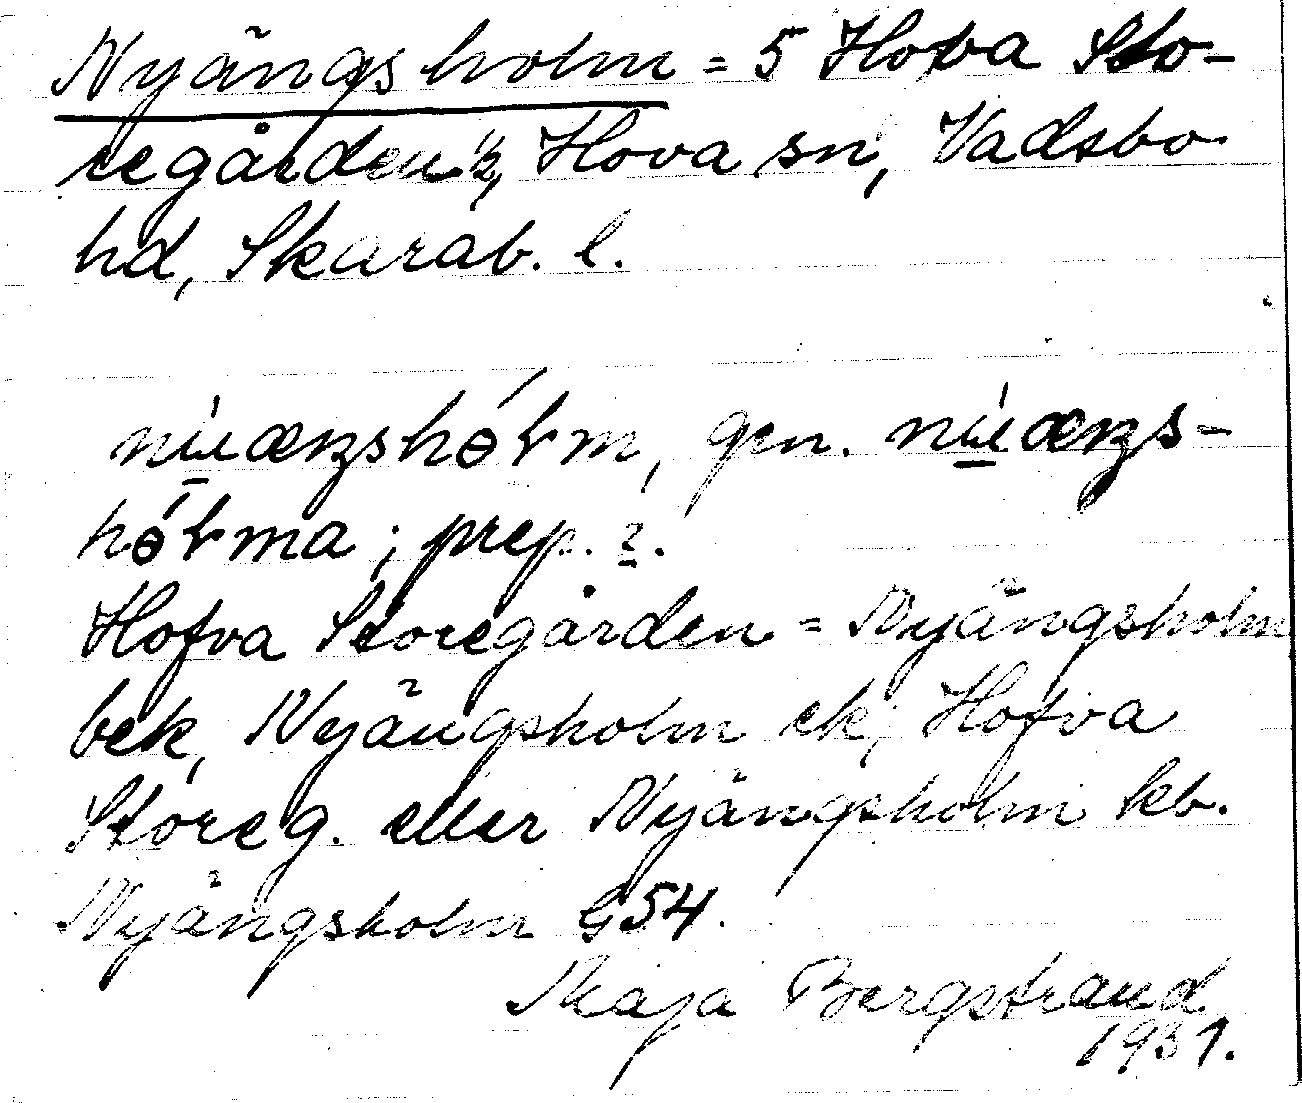 Nyängsholm = 5 Hova Sto-
regården ½, Hova sn, Vadsbo
hd, Skarab. l.
gen.
prep. ?.
Hofva Storegården = Nyängsholm
bek, Nyängsholm ek, Hofva
Storeg. eller Nyängsholm kb.
Nyängsholm G54.
Maja Bergstrand
1931.